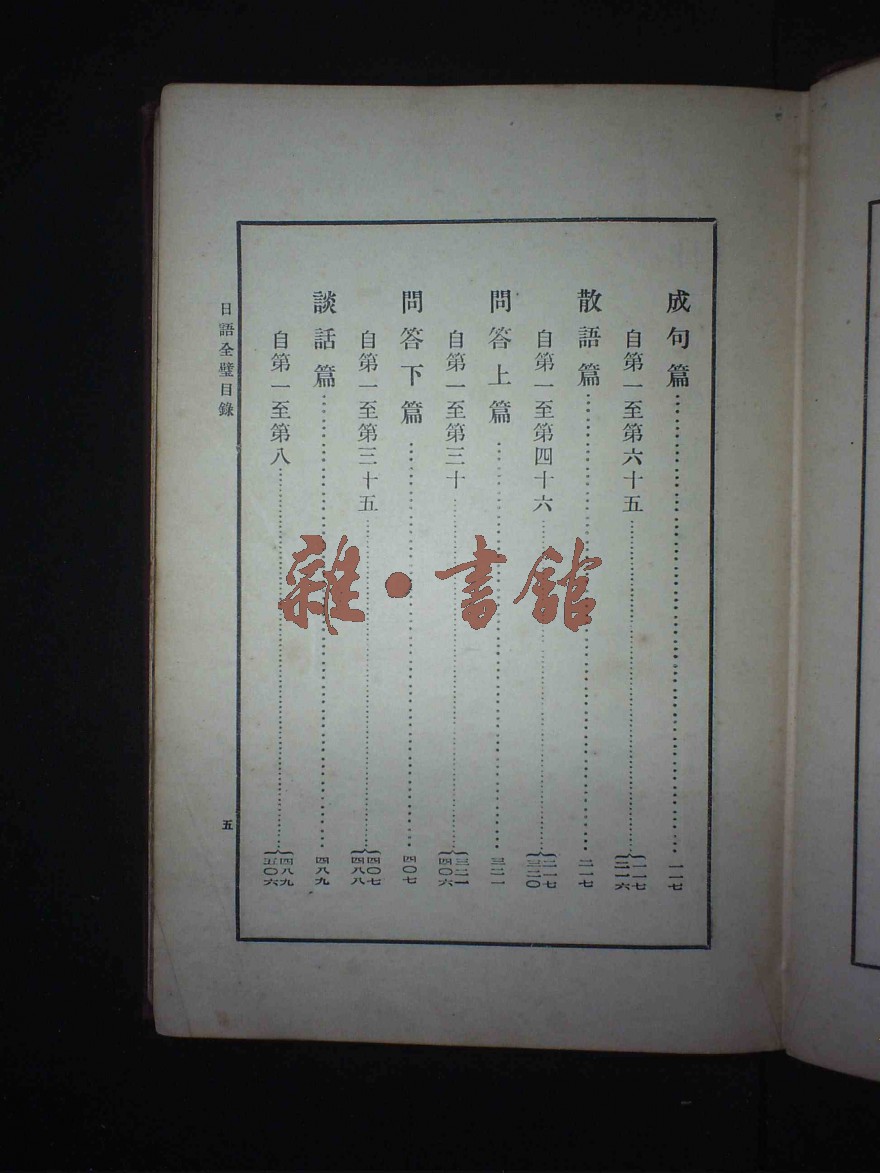 成句篇……一一七
自第一至第六十五……{一一七
二一六
散語篇……二一七
自第一至第四十六……{二一七
三二〇
問答上篇……三二一
自第一至第三十……{三二一
四〇六
問答下篇……四〇七
自第一至第三十五……{四〇七
四八八
談話篇……四八九
自第一至第八……{四八九
五〇六
日語全璧目錄
五
雜·書館